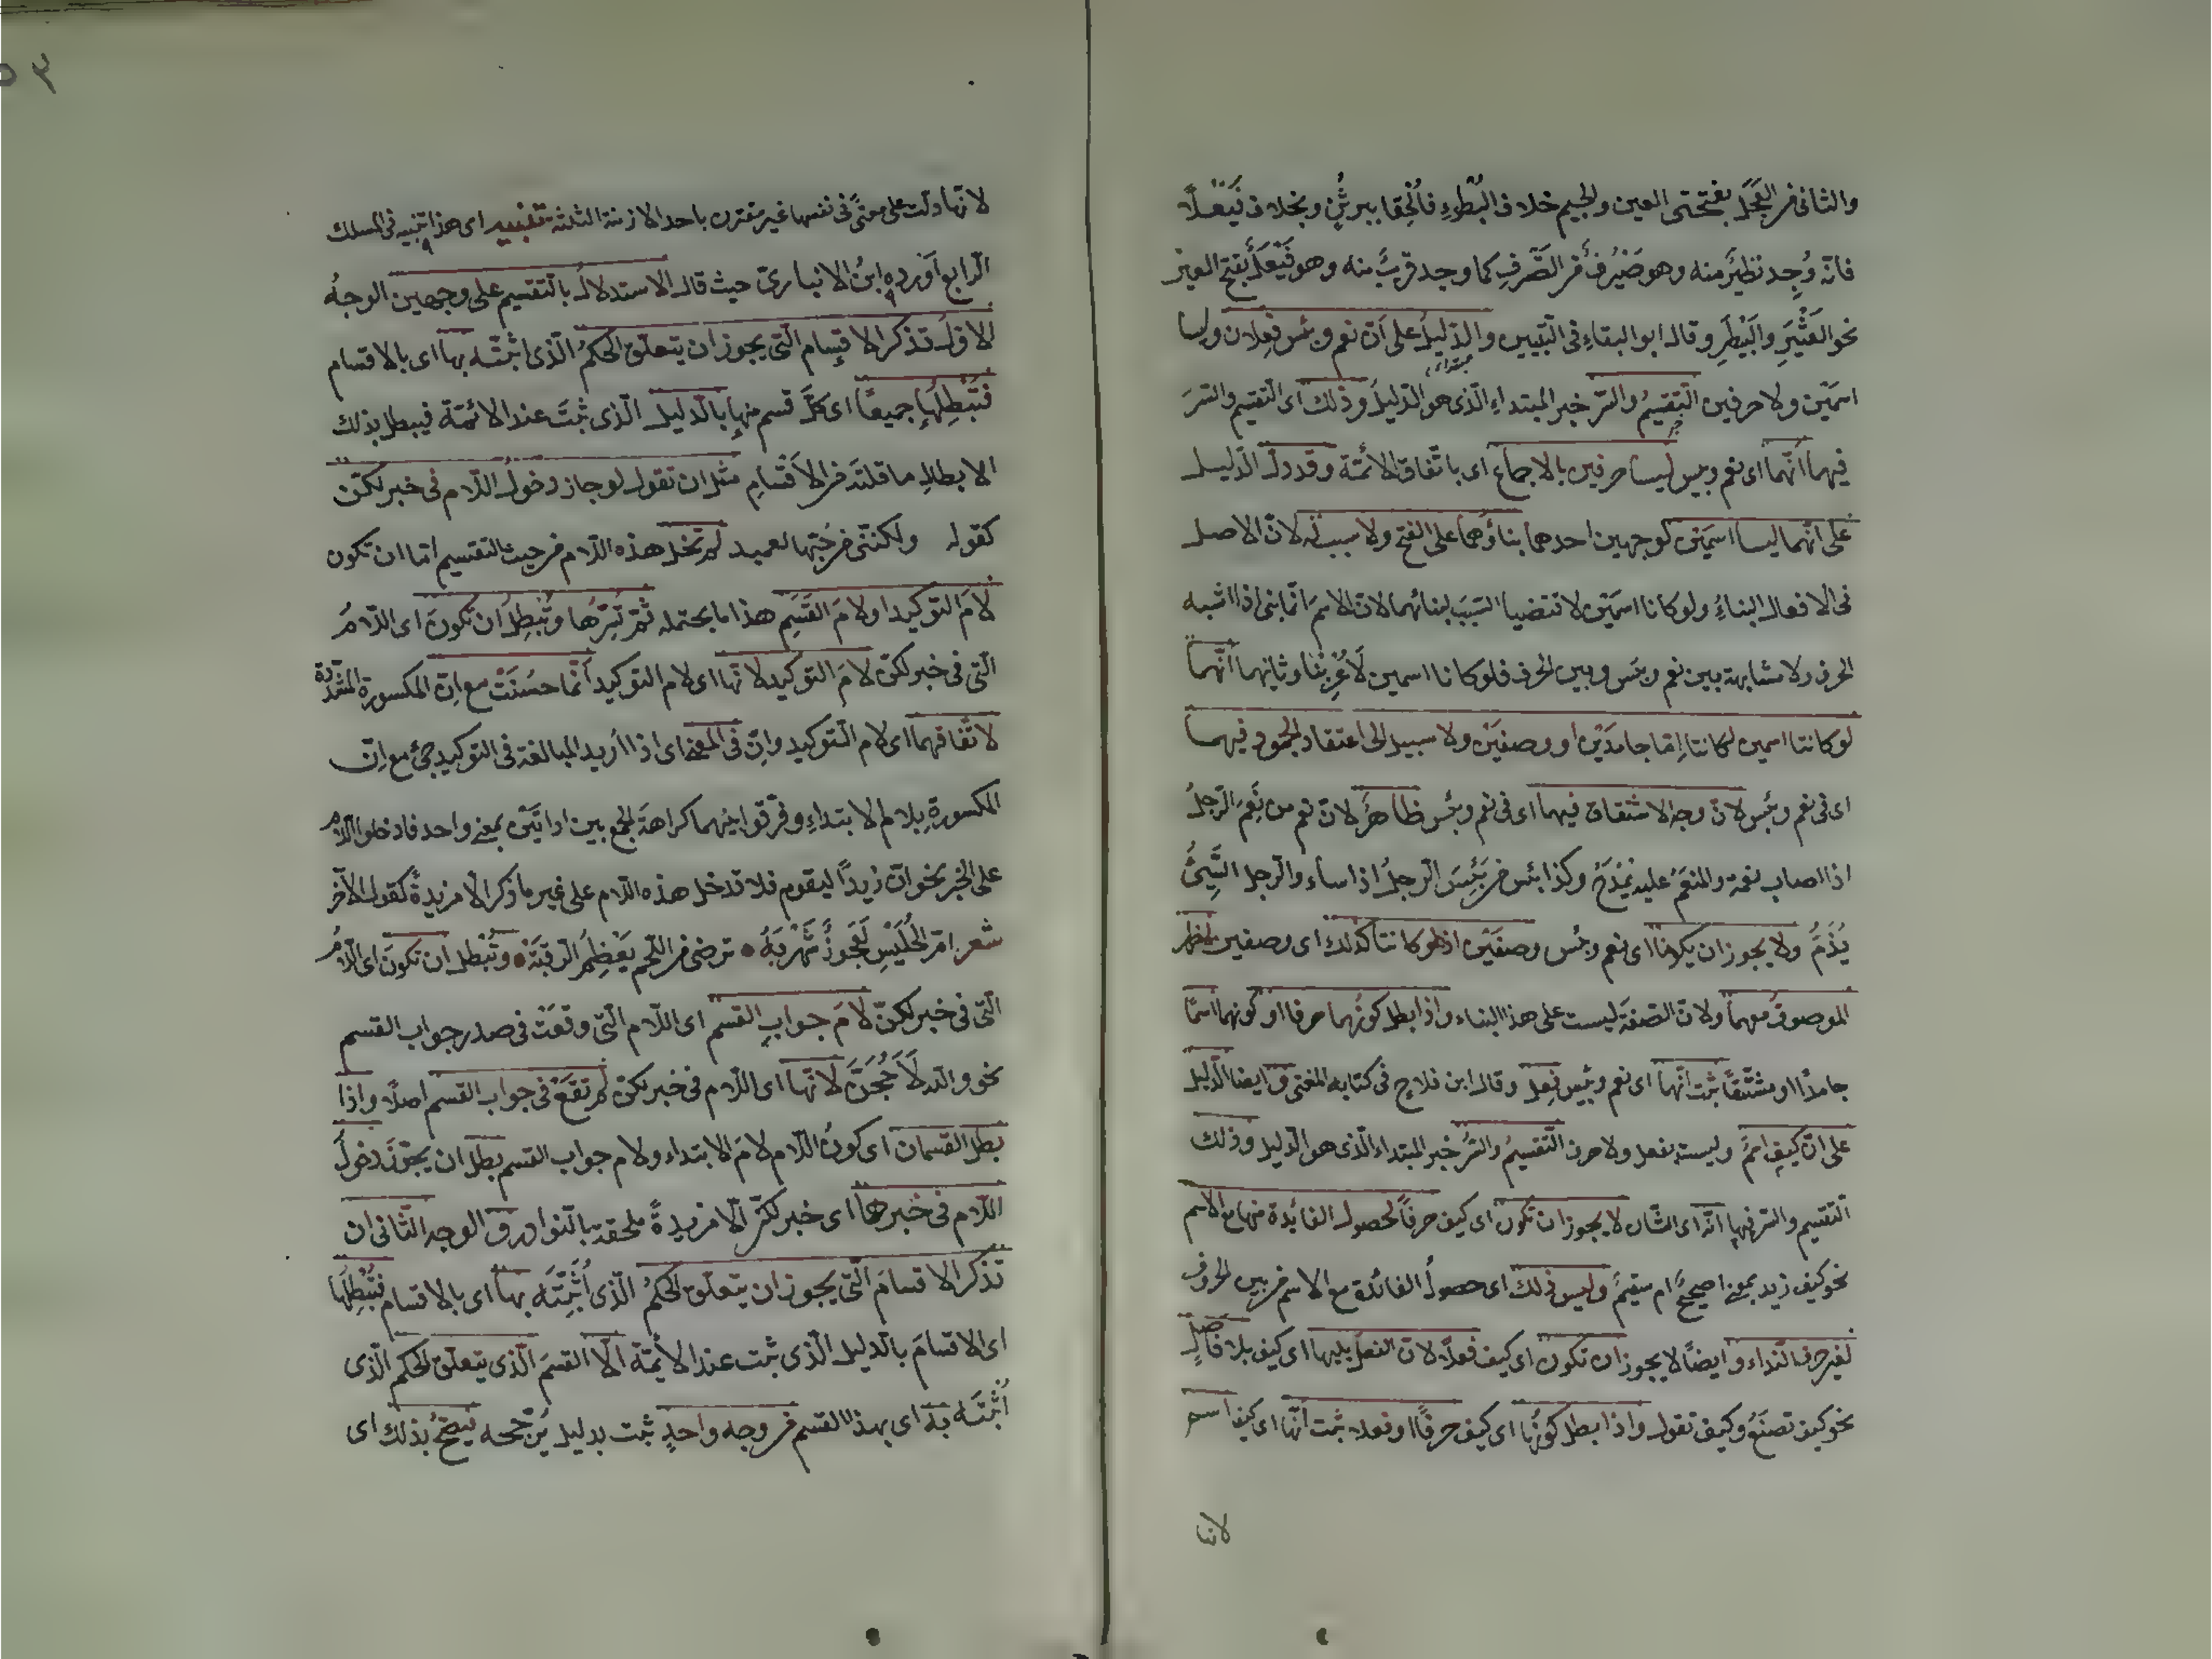 والثانى من العَجَل بفتحتى العين والجيم خلاف البُطْوءِ فأُلحِقا ببرثُنٍ وبخلاف فَيَعْلًا
فانّه وُجِد نظيرٌ منه وهو صَيْرَفٌ من الصَّرفِ كما وجد قريبٌ منه وهو فَيْعَلٌ بفتح العين
نحو العَثْيَرِ والبَيْطَرِ وقال ابو البقاءِ فى التبيين والدّليلُ على اَنّ نعم وبئس فِعلان وليسا
اسمَين ولا حرفين التّقسيمُ والسّبر خبر المبتداءِ الّذى هو الدّليلُ وذلك اى التّقسيم والسّبرَ
فيهما أنّهما اى نعم وبئس ليسا حرفين بالاجماع اى باتّفاق الائمّة وقد دلّ الدّليل
على انّهما ليسا اسمَيْن لوجهين احدهما بناؤُهما على الفتح ولا سبب له لانّ الاصل
فى الافعال البناءُ ولو كانا اسمَيْن لاقتضيا السّبَبَ لبنائهما لانّ الاسمَ انّما بنى اذا اشبه
الحرف ولا مشابهة بين نعم وبئس وبين الحرف فلو كانا اسمين لَأُعْرِبَا وثانيهما أنّهما
لو كانتا اسمين لكانتا إمّا جامدَيْن أو وصفَيْن ولا سبيل الى اعتقاد الجمود فيهما
اى فى نعم وبئس لانّ وجه الاشتقاق فيهما اى فى نعم وبئس ظاهرٌ لانّ نعم من نَعِمَ الرّجلُ
اذا اصاب نعمة والمنعَمُ عليه يُمْدَحُ وكذا بئس من بَئِسَ الرّجلُ اذا ساء والرّجل السَّيِّئُ
يُذَمُّ ولا يجوز ان يكونا اى نعم وبئس وصفَيْن اذ لو كانتا كذلك اى وصفين لظهر
الموصوفُ معهما ولانّ الصّفةَ ليست على هذا البناء واذا بطل كونُهما حرفا او كونهما اسمًا
جامدًا او مشتّقًا ثبت انّهما اى نعم وبئس فِعل وقال ابن فلاحٍ فى كتابه المغنى وايضا الدّليل
على انّ كيف اسمٌ وليست بفعل ولا حرف التّقسيمُ والسّبرُ خبر المبتداء الّذى هو الدّليل وذلك
التّقسيم والسّبر فيها انّه اى الشّان لا يجوز ان تكون اى كيف حرفًا لحصول الفائدة منها مع الاسم
نحو كيف زيد بمعنى اصحيحٌ ام سقيمٌ وليس ذلك اى حصولُ الفائدة مع الاسم من بين الحروف
لغير حرف النّداء وايضًا لا يجوز ان تكون اى كيف فعلًا لانّ الفعلَ يليها اى كيف بلا فاصلٍ
نحو كيف تصنَعُ وكيف تقول واذا بطل كونُها اى كيف حرفًا او فعلا ثبت انّها اى كيف اسم
لانها
٥٣
لانّها دلّت على معنًى فى نفسها غير مقترن باحد الازمنة الثلثة تنبيه اى هذا تنبيه فى المسلك
الرّابع اَوْرده ابنُ الانبارىّ حيث قال الاستدلالُ بالتّقسيم على وجهين الوجهُ
الاوّل تذكر الاقسام الّتى يجوز ان يتعلّق الحكمُ الّذى اثبتَّه بها اى بالاقسام
فتُبْطِلُها جميعًا اى كلَّ قسم منها بالدّليل الّذى ثبتَ عند الائمّة فيبطل بذلك
الابطالِ ما قلتَه من الاَقسَامِ مثل ان تقول لو جاز دخولُ اللّام فى خبر لكنّ
كقوله ولكنّنى من حُبّها لعميد لم تخل هذه اللّام من حيث التقسيم امّا ان تكون
لامَ التوكيد او لامَ القَسَمِ هذا ما يحتمله ثمّ تَسْبُرُها وتُبْطِلُ ان تكونَ اى اللّامُ
الّتى فى خبر لكنّ لامَ التوكيد لانّها اى لام التوكيد انّما حسُنَتْ مع اِنّ المكسورة المشدّدة
لاتّفاقهما اى لام التّوكيد وانّ فى المعنى اى اذا اُريد المبالغة فى التوكيد جئ مع اِنّ
المكسورةِ بلام الابتداءِ وفرّقوا بينهما كراهةَ الجمع بين اداتَيْن بمعنى واحد فادخلوا اللّامَ
على الخبر نحو انّ زيدًا ليقوم فلا تدخل هذه اللّام على غير ما ذكر الّا مزيدةً كقول الآخر
شعر امّ الحُلَيْسِ لَعَجُوزٌ شَهْرَبَهْ • ترضى من اللّحم بعَظمِ الرّقبَهْ • وتُبْطل ان تكونَ اى اللّامُ
الّتى فى خبر لكنّ لامَ جوابِ القسم اى اللّام الّتى وقعَتْ فى صدر جواب القسم
نحو واللّه لَاَحُجَنَّ لانّها اى اللّام فى خبر لكنّ لم تقَعْ فى جواب القسم اصلًا واذا
بطل القسمان اى كونُ اللّام لامَ الابتداء ولام جواب القسم بطل ان يجوّزَ دخولُ
اللّام فى خبرها اى خبر لكنّ الّا مزيدةً ملحقة بالنّوادر والوجه الثّانى ان
تذكر الاقسامَ الّتى يجوز ان يتعلّق الحكمُ الّذى اُثبِتَّه بها اى بالاقسام فتُبْطِلُها
اى الاقسامَ بالدّليل الّذى ثبت عند الأئمّة الّا القسمَ الّذى يتعلّق الحكم الّذى
اُثبتَّه به اى بهذا القسم من وجه واحدٍ ثبت بدليل يُرجّحه فيصحُّ بذلك اى